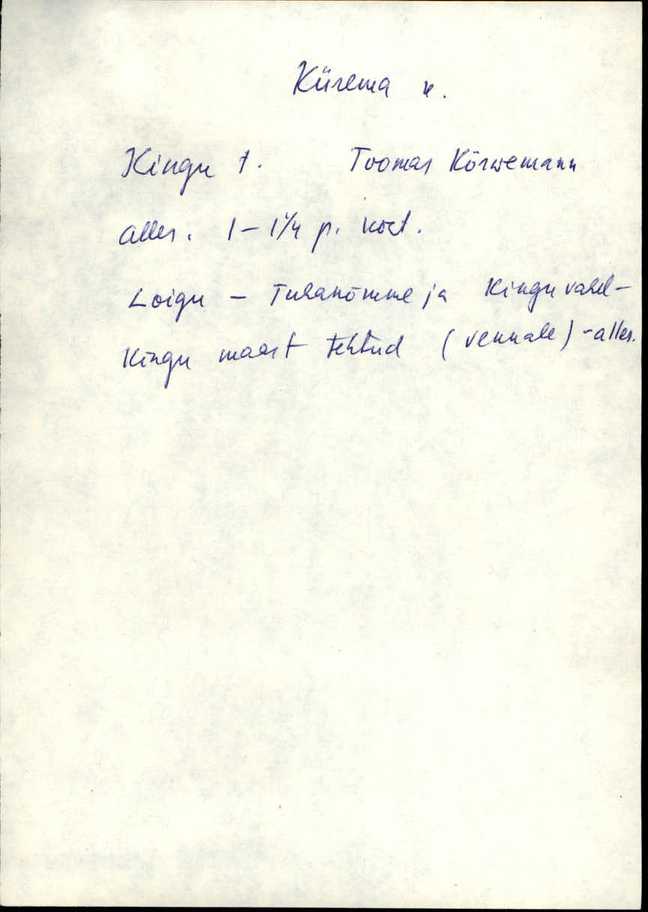 Kürema k.
Kingu t. Toomas Kõrwemann
alles. 1-1¼ p. koct.
Loigu - Tuhanõmme ja Kingu vahel-
Kingu maast tehtud (vennale) - alles.